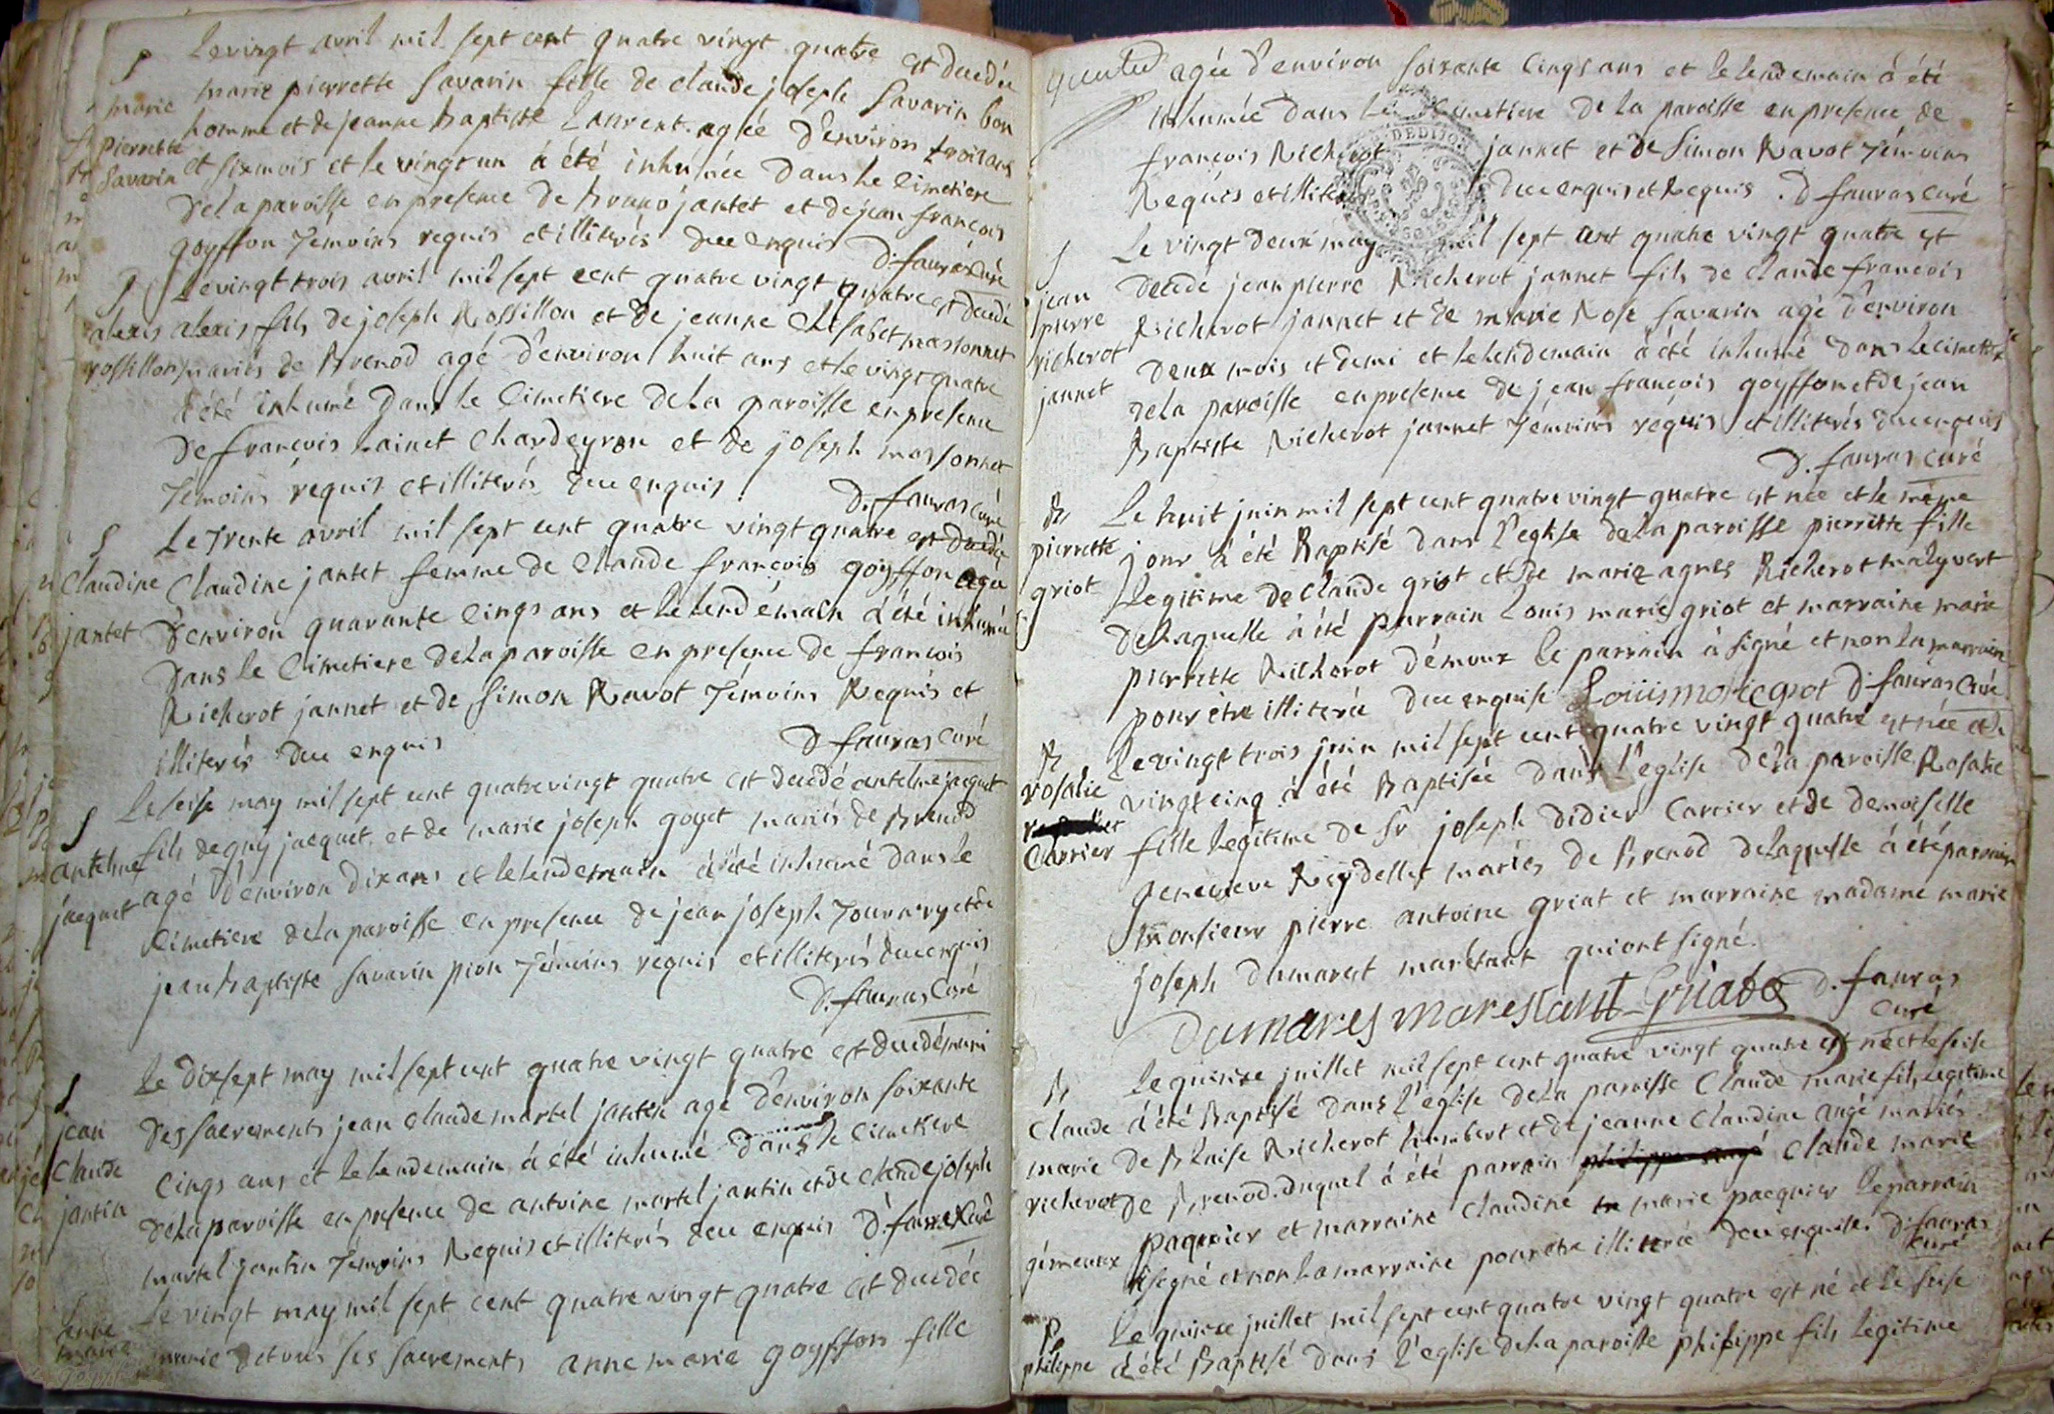 S Le vingt avril mil sept cent quatre vingt quatre est decedée
marie marie pierrette Savarin fille de claude joseph Savarin bon
pierrette homme et de jeanne Baptiste Laurent agée d'environ trois ans
Savarin et six mois et le vingt un à été inhumée dans le Cimetiere
de la paroisse en presence de Bruno jantet et de jean françois
goyffon Témoins requis et illiterés duee enquis D. fauras Curé
S Le vingt trois avril mil sept cent quatre vingt quatre est decedé
alexis alexis fils de joseph Rossillon et de jeanne Elisabet massonnet
rossillon mariés de Brenod agé d'environ huit ans et le vingt quatre
à été inhumé dans le Cimetiere de la paroisse en presence
de françois Lainet Chardeyron et de joseph massonnet
Témoins requis et illiterés duee enquis. D. fauras Curé
S Le Trente avril mil sept cent quatre vingt quatre est decedée
Claudine Claudine jantet femme de Claude françois goyffon agée
jantet d'environ quarante Cinqs ans et le lendemain à été inhumée
dans le Cimetiere de la paroisse en presence de françois
Richerot jannet et de Simon Ravot Témoins Requis et
illiterés duee enquis D. fauras Curé
S Le seise may mil sept cent quatre vingt quatre est decedé antelme jacquet
antelme fils de guy jacquet et de marie joseph goyet mariés de Brenod
jacquet agé d'environ dix ans et le lendemain à été inhumé dans le
Cimetiere de la paroisse en presence de jean joseph Tournery et de
jean Baptiste Savarin pion Témoins requis et illiterés duee enquis
D. fauras Curé
S Le dix sept may mil sept cent quatre vingt quatre est decedé muni
jean des sacrements jean claude martel jantin agé d'environ soixante
Claude Cinqs ans et le lendemain à été inhumé dans le Cimetiere
jantin de la paroisse en presence de antoine martel jantin et de claude joseph
martel jantin Témoins Requis et illiterés duee enquis D. fauras Curé
S Le vingt may mil sept cent quatre vingt quatre est decedée
anne marie munie de tous ses sacrements anne marie goyffon fille
agée d'environ soixante Cinqs ans et le lendemain à été
inhumée dans le Cimetiere de la paroisse en presence de
françois Richerot jannet et de Simon Ravot Témoins
Requis et illiterés duee enquis et Requis. D. fauras Curé
DEDITIO
S Le vingt deux may mil sept cent quatre vingt quatre est
jean decedé jean pierre Richerot jannet fils de Claude françois
pierre Richerot jannet et de marie Rose Savarin agé d'environ
richerot deux mois et demi et le lendemain à été inhumé dans le cimetiere
jannet de la paroisse en presence de jean françois goyffon et de jean
Baptiste Richerot jannet Témoins requis et illiterés duee enquis
D. fauras Curé
B Le huit juin mil sept cent quatre vingt quatre est née et le même
pierrette jour à été Baptisé dans l'eglise de la paroisse pierrette fille
griot Legitime de Claude griot et de marie agnes Richerot malyvert
de laquelle à été parrain Louis marie griot et marraine marie
pierrette Richerot démoux le parrain à signé et non la marraine
pour être illiterée duee enquise Loüis marie griot D. fauras Curé
B Le vingt trois juin mil sept cent quatre vingt quatre est née et le
rosalie vingt cinq à été Baptisée dans l'eglise de la paroisse Rosalie
Carrier fille Legitime de Sr joseph Didier Carrier et de demoiselle
genevieve Reydellet mariés de Brenod de laquelle à été parrain
monsieur pierre antoine griat et marraine madame marie
joseph dumarest marestant qui ont signé.
Dumarest marestant Griat D. fauras
Curé
B Le quinze juillet mil sept cent quatre vingt quatre est né et le seise
Claude à été Baptisé dans l'eglise de la paroisse Claude marie fils Legitime
marie de Blaise Richerot humbert et de jeanne Claudine angé mariés
richerot de Brenod. duquel à été parrain Claude marie
paquier et marraine Claudine marie pacquier le parrain
gémeaux à signé et non la marraine pour etre illiterée duee enquise. D. fauras
Curé
B Le quinze juillet mil sept cent quatre vingt quatre est né et le seise
philippe à été Baptisé dans l'eglise de la paroisse philippe fils Legitime